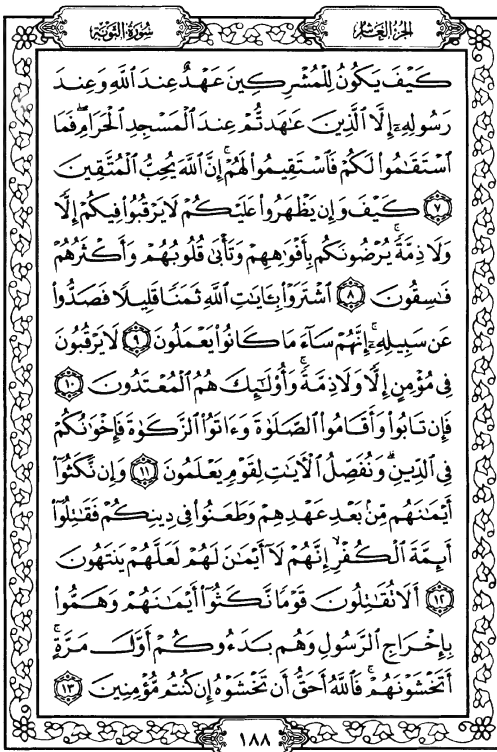 سُورَةُ التَّوْبَةِ
الجُزْءُ العَاشِرُ
كَيْفَ يَكُونُ لِلْمُشْرِكِينَ عَهْدٌ عِندَ ٱللَّهِ وَعِندَ
رَسُولِهِۦٓ إِلَّا ٱلَّذِينَ عَٰهَدتُّمْ عِندَ ٱلْمَسْجِدِ ٱلْحَرَامِ ۖ فَمَا
ٱسْتَقَٰمُوا۟ لَكُمْ فَٱسْتَقِيمُوا۟ لَهُمْ ۚ إِنَّ ٱللَّهَ يُحِبُّ ٱلْمُتَّقِينَ
٧ كَيْفَ وَإِن يَظْهَرُوا۟ عَلَيْكُمْ لَا يَرْقُبُوا۟ فِيكُمْ إِلًّا
وَلَا ذِمَّةً ۚ يُرْضُونَكُم بِأَفْوَٰهِهِمْ وَتَأْبَىٰ قُلُوبُهُمْ وَأَكْثَرُهُمْ
فَٰسِقُونَ ٨ ٱشْتَرَوْا۟ بِـَٔايَٰتِ ٱللَّهِ ثَمَنًا قَلِيلًا فَصَدُّوا۟
عَن سَبِيلِهِۦٓ ۚ إِنَّهُمْ سَآءَ مَا كَانُوا۟ يَعْمَلُونَ ٩ لَا يَرْقُبُونَ
فِى مُؤْمِنٍ إِلًّا وَلَا ذِمَّةً ۚ وَأُو۟لَٰٓئِكَ هُمُ ٱلْمُعْتَدُونَ ١٠
فَإِن تَابُوا۟ وَأَقَامُوا۟ ٱلصَّلَوٰةَ وَءَاتَوُا۟ ٱلزَّكَوٰةَ فَإِخْوَٰنُكُمْ
فِى ٱلدِّينِ ۗ وَنُفَصِّلُ ٱلْـَٔايَٰتِ لِقَوْمٍ يَعْلَمُونَ ١١ وَإِن نَّكَثُوٓا۟
أَيْمَٰنَهُم مِّنۢ بَعْدِ عَهْدِهِمْ وَطَعَنُوا۟ فِى دِينِكُمْ فَقَٰتِلُوٓا۟
أَئِمَّةَ ٱلْكُفْرِ ۙ إِنَّهُمْ لَآ أَيْمَٰنَ لَهُمْ لَعَلَّهُمْ يَنتَهُونَ
١٢ أَلَا تُقَٰتِلُونَ قَوْمًا نَّكَثُوٓا۟ أَيْمَٰنَهُمْ وَهَمُّوا۟
بِإِخْرَاجِ ٱلرَّسُولِ وَهُم بَدَءُوكُمْ أَوَّلَ مَرَّةٍ ۚ
أَتَخْشَوْنَهُمْ ۚ فَٱللَّهُ أَحَقُّ أَن تَخْشَوْهُ إِن كُنتُم مُّؤْمِنِينَ ١٣
١٨٨